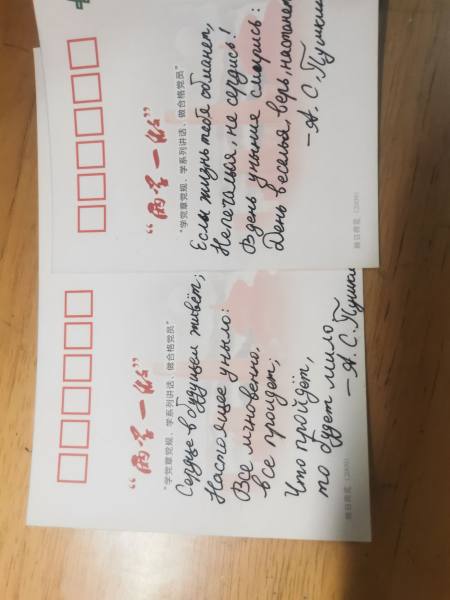 “两学一做”
“学党章党规、学系列讲话、做合格党员”
Если жизнь тебя обманет,
Не печалься, не сердись!
В день уныния смирись:
День веселья, верь, настанет
—А. С. Пушкин
(2009)
“两学一做”
“学党章党规、学系列讲话、做合格党员”
Сердце в будущем живёт;
Настоящее уныло:
Все мгновенно,
все пройдет;
Что пройдёт,
то будет мило
—А. С. Пушки
(2009)